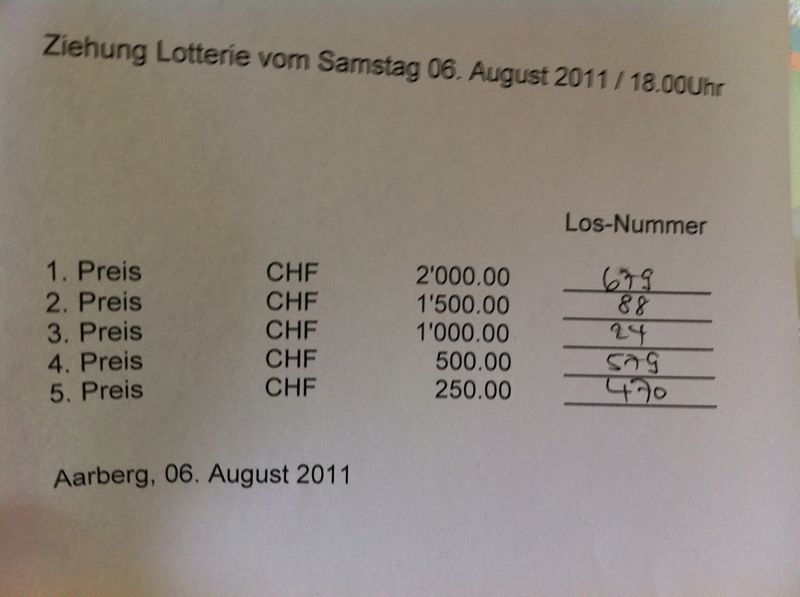 Ziehung Lotterie vom Samstag 06. August 2011 / 18.00Uhr
Los-Nummer
1. Preis CHF 2'000.00 679
2. Preis CHF 1'500.00 88
3. Preis CHF 1'000.00 24
4. Preis CHF 500.00 579
5. Preis CHF 250.00 470
Aarberg, 06. August 2011